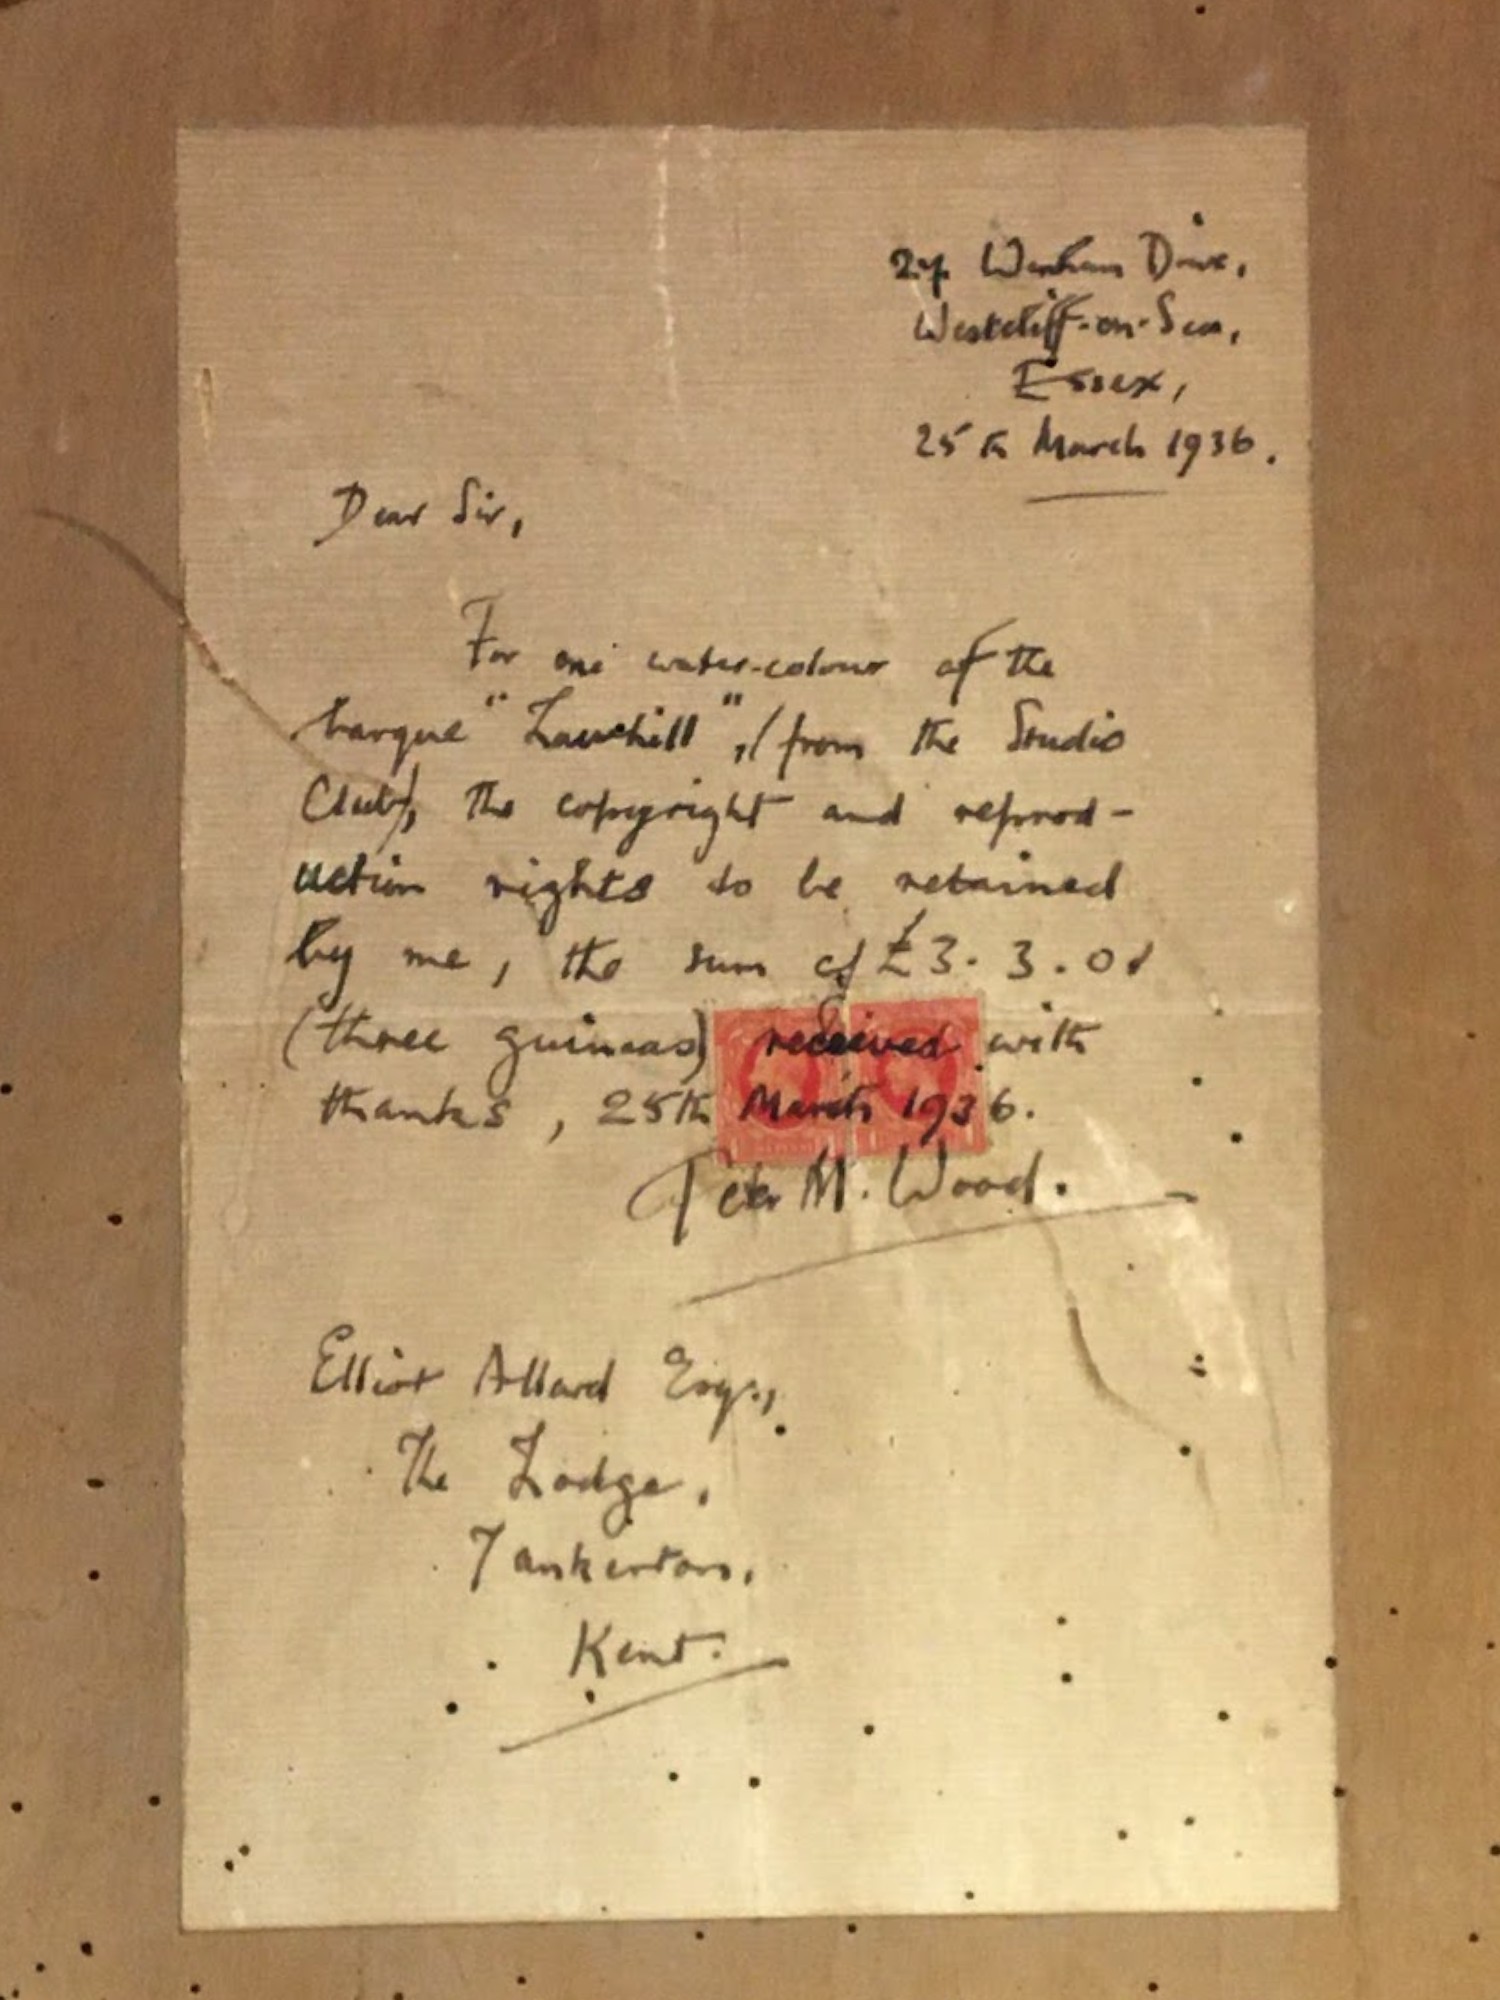 27 Wenham Drive,
Westcliff-on-Sea,
Essex,
25th March 1936.
Dear Sir,
For one water-colour of the
barque "Lawhill", (from the Studio
Club), the copyright and reprod-
uction rights to be retained
by me, the sum of £3. 3. 0d
(three guineas) received with
thanks, 25th March 1936.
Peter M. Wood.
Elliot Allard Esq.,
The Lodge,
Tankerton,
Kent.